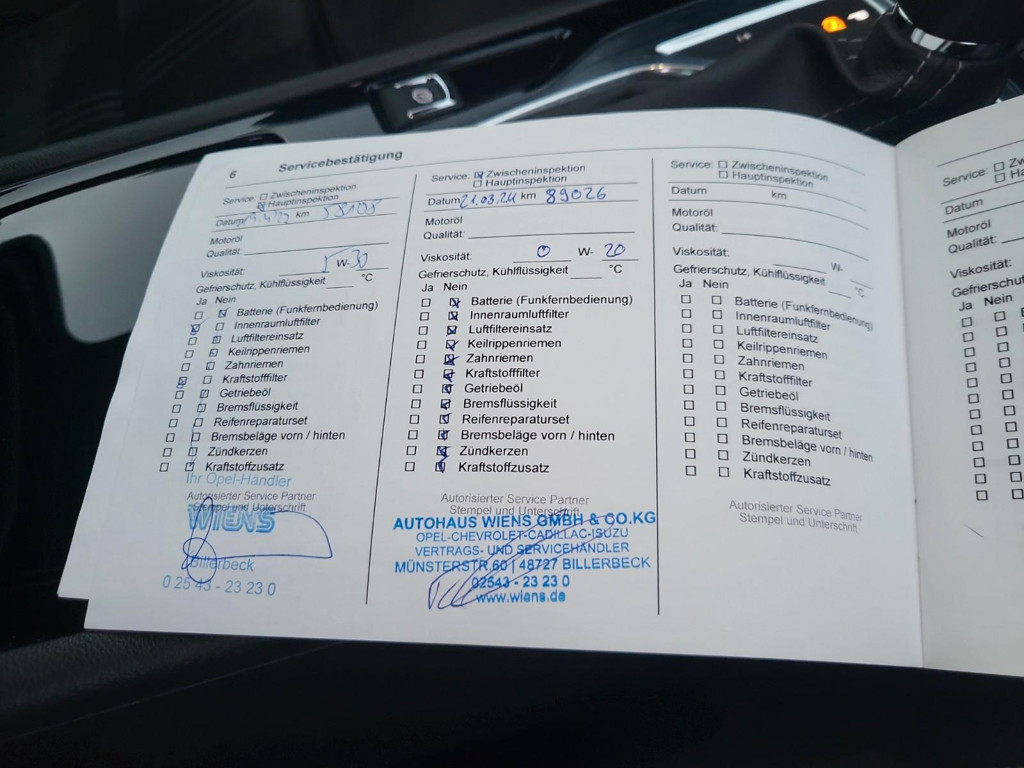 6 Servicebestätigung
Service: Zwischeninspektion
Hauptinspektion
Datum km 58108
Motoröl
Qualität:
Viskosität: 5 W- 30
Gefrierschutz, Kühlflüssigkeit °C
Ja Nein
Batterie (Funkfernbedienung)
Innenraumluftfilter
Luftfiltereinsatz
Keilrippenriemen
Zahnriemen
Kraftstofffilter
Getriebeöl
Bremsflüssigkeit
Reifenreparaturset
Bremsbeläge vorn / hinten
Zündkerzen
Kraftstoffzusatz
Ihr Opel-Händler
Autorisierter Service Partner
Stempel und Unterschrift
WIENS
Billerbeck
0 25 43 - 23 23 0
Service: Zwischeninspektion
Hauptinspektion
Datum 21.08.24 km 89026
Motoröl
Qualität:
Viskosität: 0 W- 20
Gefrierschutz, Kühlflüssigkeit °C
Ja Nein
Batterie (Funkfernbedienung)
Innenraumluftfilter
Luftfiltereinsatz
Keilrippenriemen
Zahnriemen
Kraftstofffilter
Getriebeöl
Bremsflüssigkeit
Reifenreparaturset
Bremsbeläge vorn / hinten
Zündkerzen
Kraftstoffzusatz
Autorisierter Service Partner
Stempel und Unterschrift
AUTOHAUS WIENS GMBH & CO.KG
OPEL-CHEVROLET-CADILLAC-ISUZU
VERTRAGS- UND SERVICEHÄNDLER
MÜNSTERSTR.60 | 48727 BILLERBECK
02543 - 23 23 0
www.wiens.de
Service: Zwischeninspektion
Hauptinspektion
Datum km
Motoröl
Qualität:
Viskosität: W-
Gefrierschutz, Kühlflüssigkeit °C
Ja Nein
Batterie (Funkfernbedienung)
Innenraumluftfilter
Luftfiltereinsatz
Keilrippenriemen
Zahnriemen
Kraftstofffilter
Getriebeöl
Bremsflüssigkeit
Reifenreparaturset
Bremsbeläge vorn / hinten
Zündkerzen
Kraftstoffzusatz
Autorisierter Service Partner
Stempel und Unterschrift
Service:
Datum
Motoröl
Qualität:
Viskosität:
Ja Nein